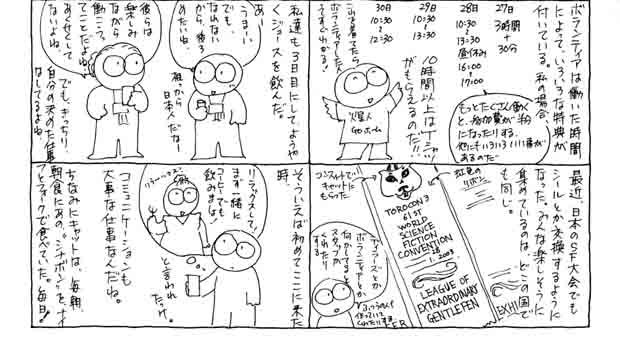 ボランティアは働いた時間
によって、いろいろな特典が
付いている。私の場合、
27日
3時間
+
30分
28日
10:30
〜
13:30
昼休み
16:00
〜
17:00
29日
10:30
〜
13:30
30日
10:30
〜
12:30
10時間以上はTシャツ
がもらえるのだ!!
もっとたくさん働く
と、参加費が半分
になったりする。
他にもいろいろ特典が
あるのだ
火星人
Go ホーム
私達も3日目にしてようや
くジュースを飲んだ。
あ〜
うまーい
でも、
なれない
から、後ろ
めたいね
根っから
日本人だな!
彼らは
楽しみ
ながら
働こう、
てことだよね
あくせくして
ないよね
でも、きっちり、
自分の決めた仕事
なしてるよね
最近、日本のSF大会でも
シールとか交換するように
なった。みんな楽しそうに
集めているのは、どこの国で
も同じ。
虹色の
リボン
コンスイートで
キャットに
もらった
TOROCON 3
61ST
WORLD
SCIENCE
FICTION
CONVENTION
2003
LEAGUE OF
EXTRAORDINARY
GENTLEFEN
EXHI
ER
ディーラーズとか
ボランティアとか
何かしてると
スタッフが
くれたり
する
そういえば初めてここに来た
時、
リラックスして!
まず一緒に
コーヒーでも
飲みましょ
と言われ
たっけ。
リラーックス
コミュニケーションも
大事な仕事なんだね。
ちなみにキャットは、毎朝、
朝食にあの、シナボンを、ナイ
フとフォークで食べていた。毎日!